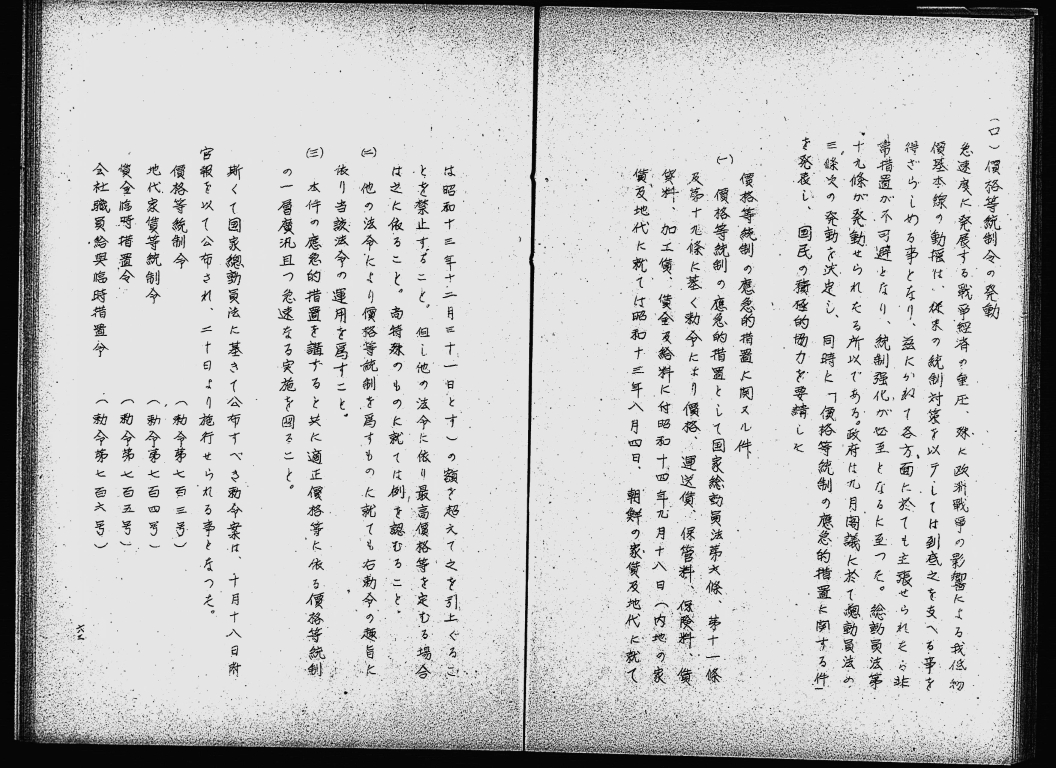 (ロ) 價格等統制令の発動
急速度に発展する戦争経済の重圧、殊に欧洲戦争の影響による我低物
價基本線の動揺は、従来の統制対策を以テしては到底之を支へる事を
得ざらしめる事となり、茲にかねて各方面に於ても主張せられたる非
常措置が不可避となり、統制強化が必至となるに至つた。総動員法第
十九條が発動せられたる所以である。政府は九月閣議に於て総動員法の
三條次の発動を决定し、同時に「價格等統制の應急的措置に関する件」
を発表し、国民の積極的協力を要請した
價格等統制の應急的措置に関スル件
(一) 價格等統制の應急的措置として国家総動員法第六條、第十一條
及第十九條に基く勅令により價格、運送賃、保管料、保険料、賃
貸料、加工賃、賃金及給料に付昭和十四年九月十八日(内地の家
賃及地代に就ては昭和十三年八月四日、朝鮮の家賃及地代に就て
は昭和十三年十二月三十一日とす)の額を超えて之を引上ぐるこ
とを禁止すること。但し他の法令に依り最高價格等を定むる場合
は之に依ること。尚特殊のものに就ては例を認むること。
(二) 他の法令により價格等統制を為すものに就ても右勅令の趣旨に
依り当該法令の運用を為すこと。
(三) 本件の應急的措置を講ずると共に適正價格等に依る價格等統制
の一層廣汎且つ急速なる実施を図ること。
斯くて国家總動員法に基きて公布すべき勅令案は、十月十八日附
官報を以て公布され、二十日より施行せられる事となつた。
價格等統制令 (勅令第七百三号)
地代家賃等統制令 (勅令第七百四号)
賃金臨時措置令 (勅令第七百五号)
会社職員給與臨時措置令 (勅令第七百六号)